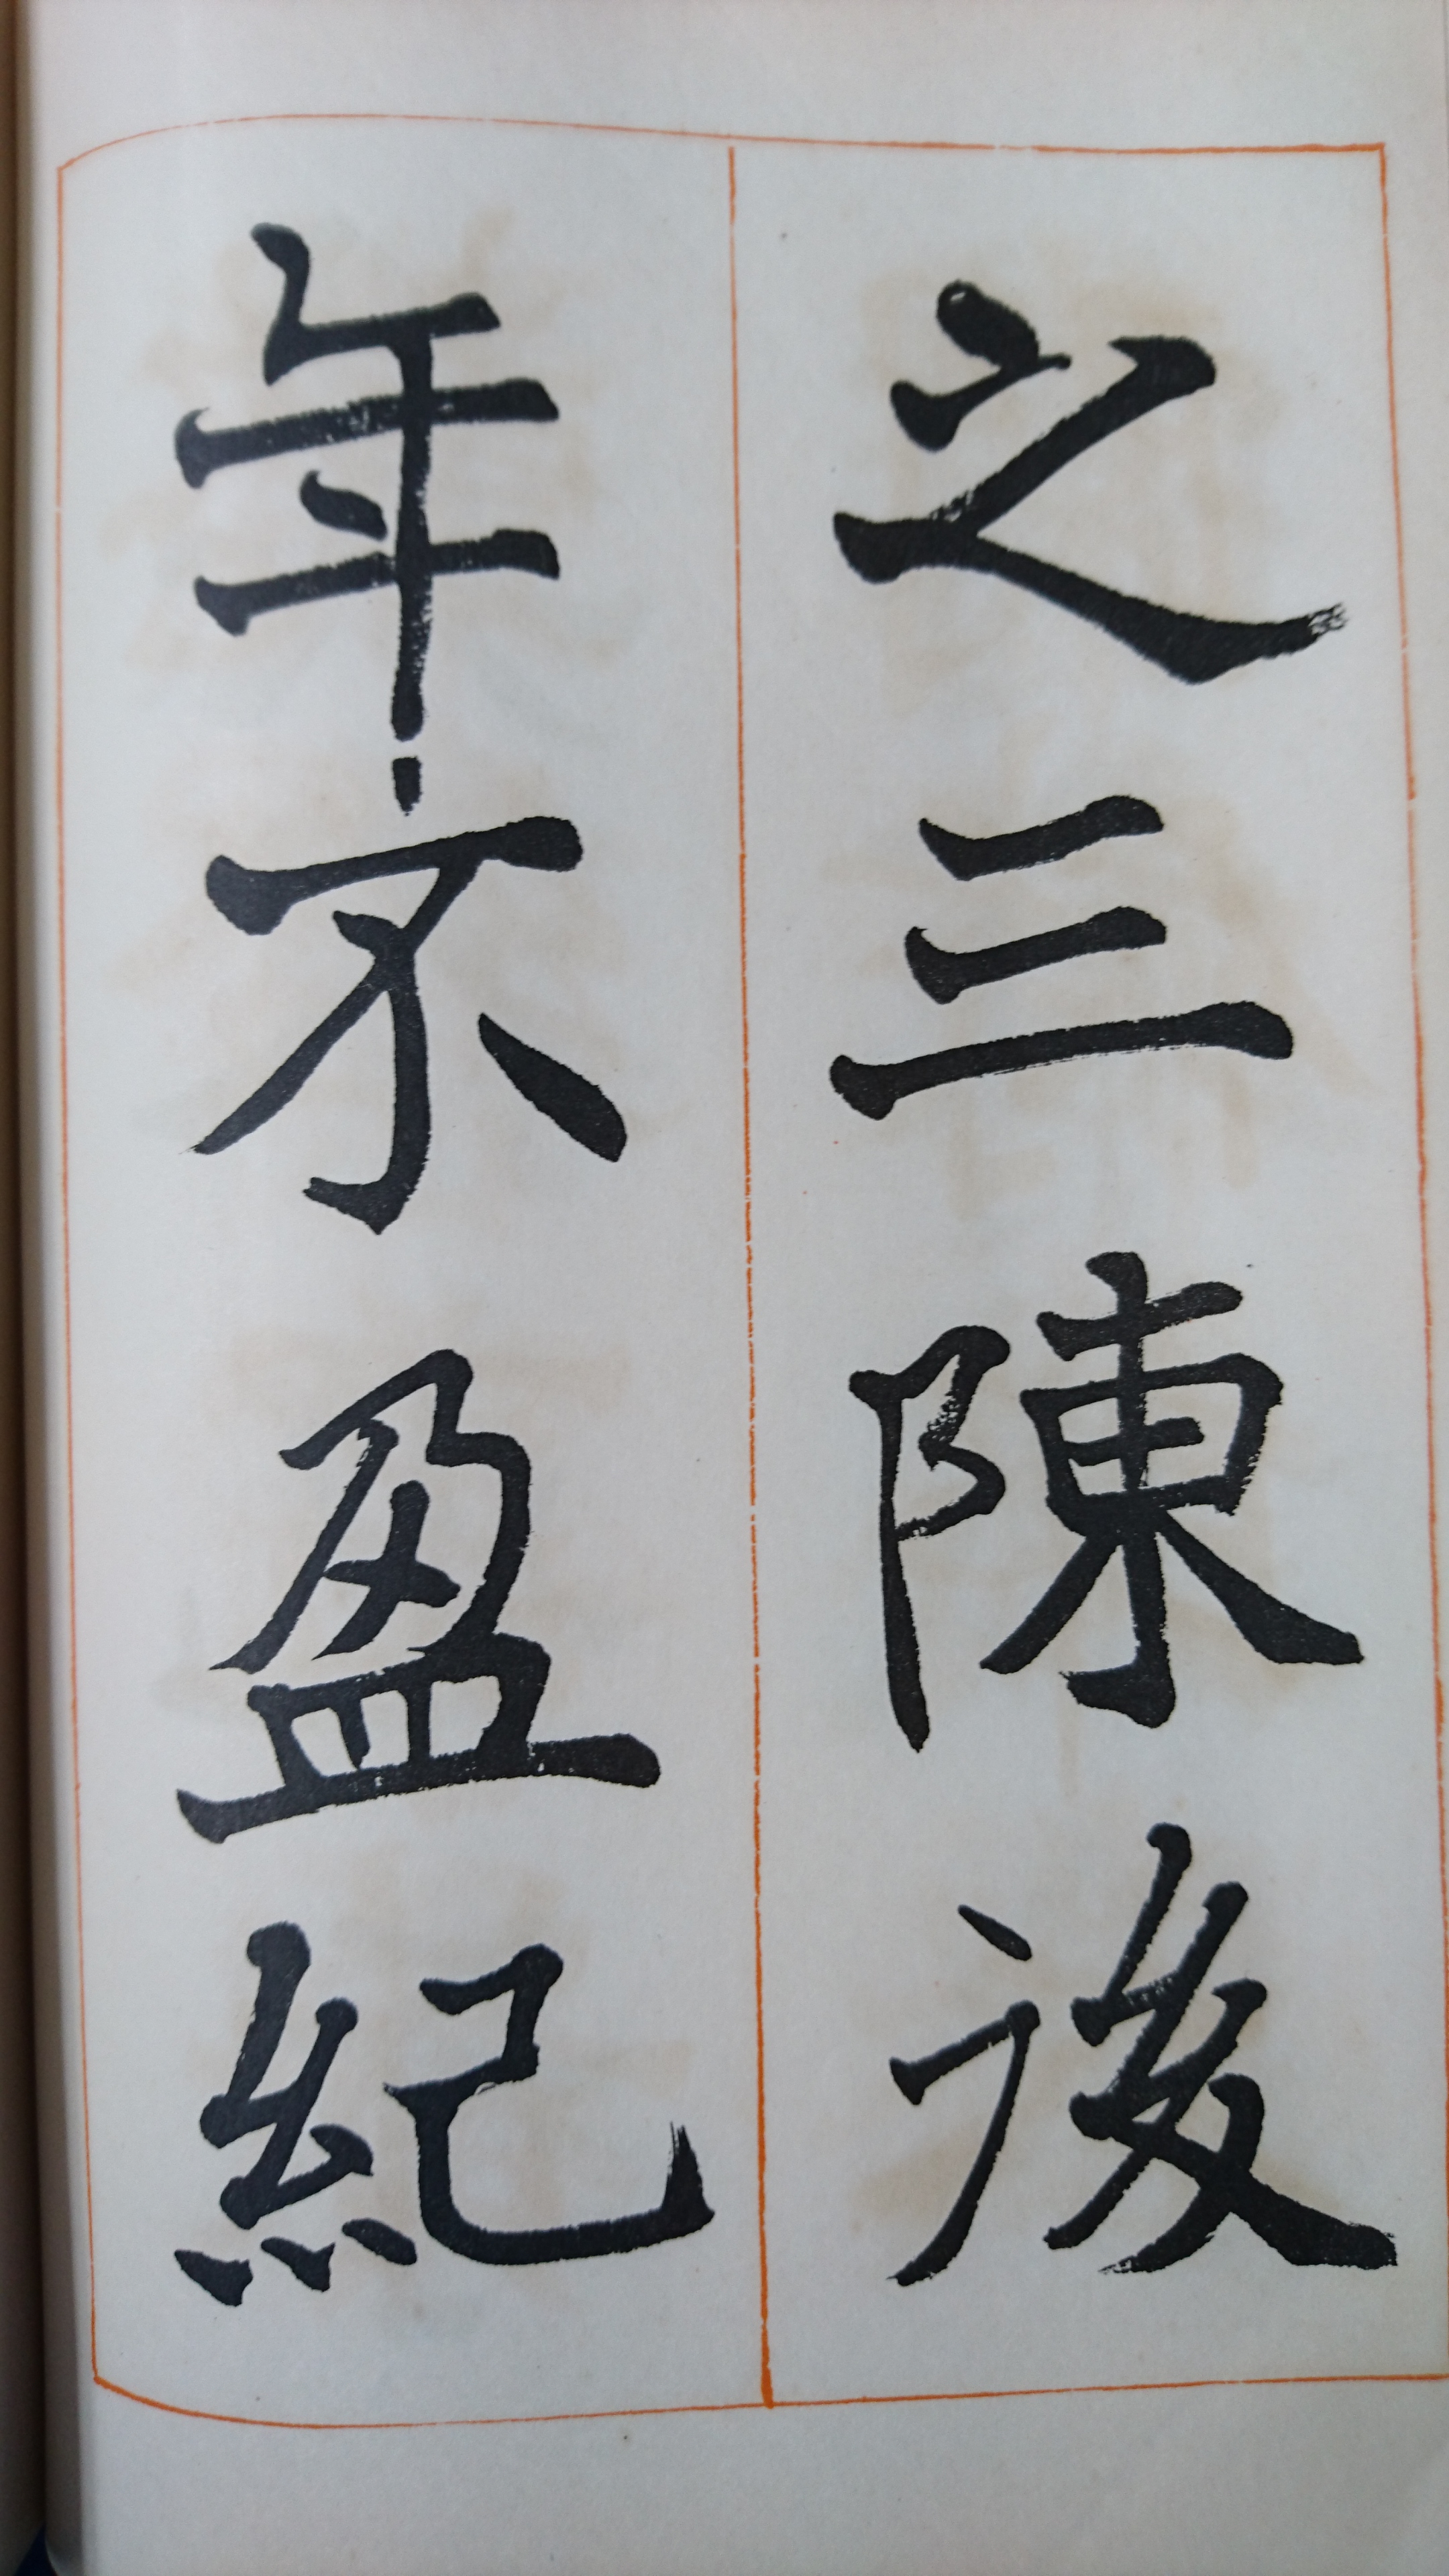 之三陳後
年不盈紀